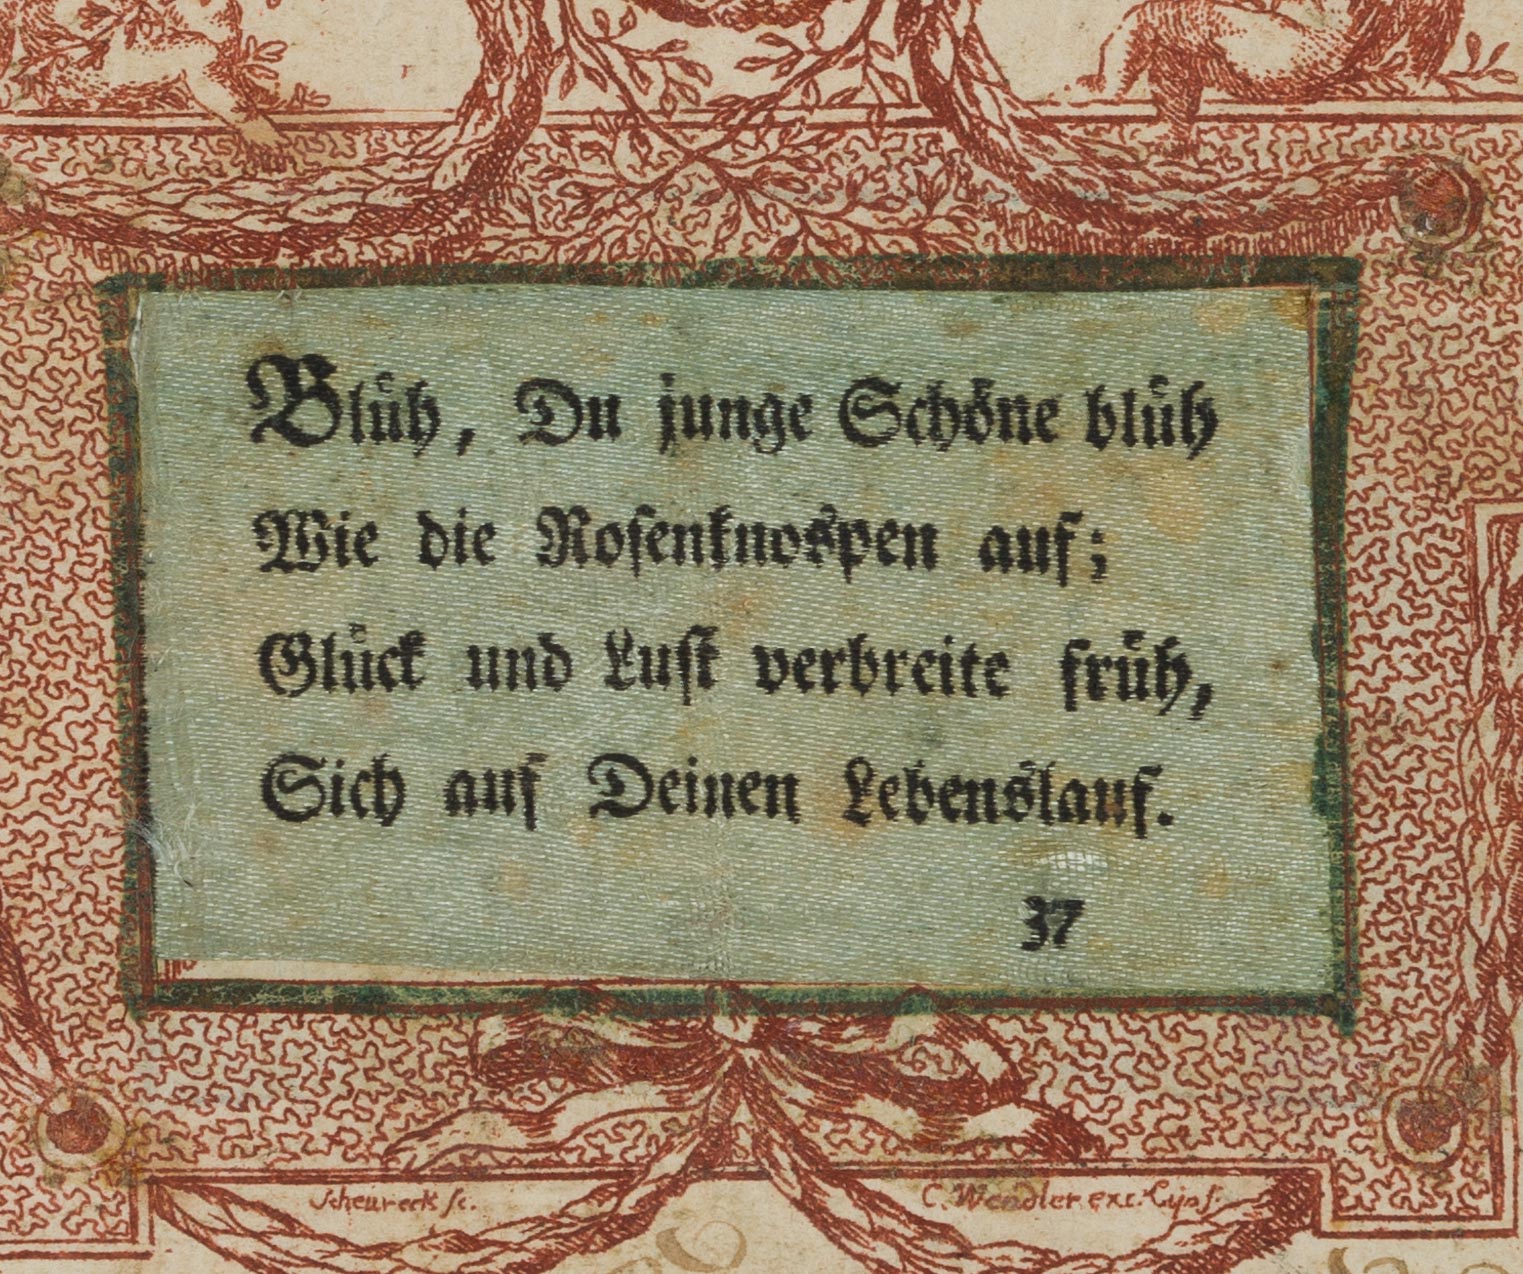 Blüh, Du junge Schöne blüh
Wie die Roſenknospen auf;
Glück und Luſt verbreite früh,
Sich auf Deinen Lebenslauf.
37
Scheureck ſc.
C. Wendler exc. Lypſ.